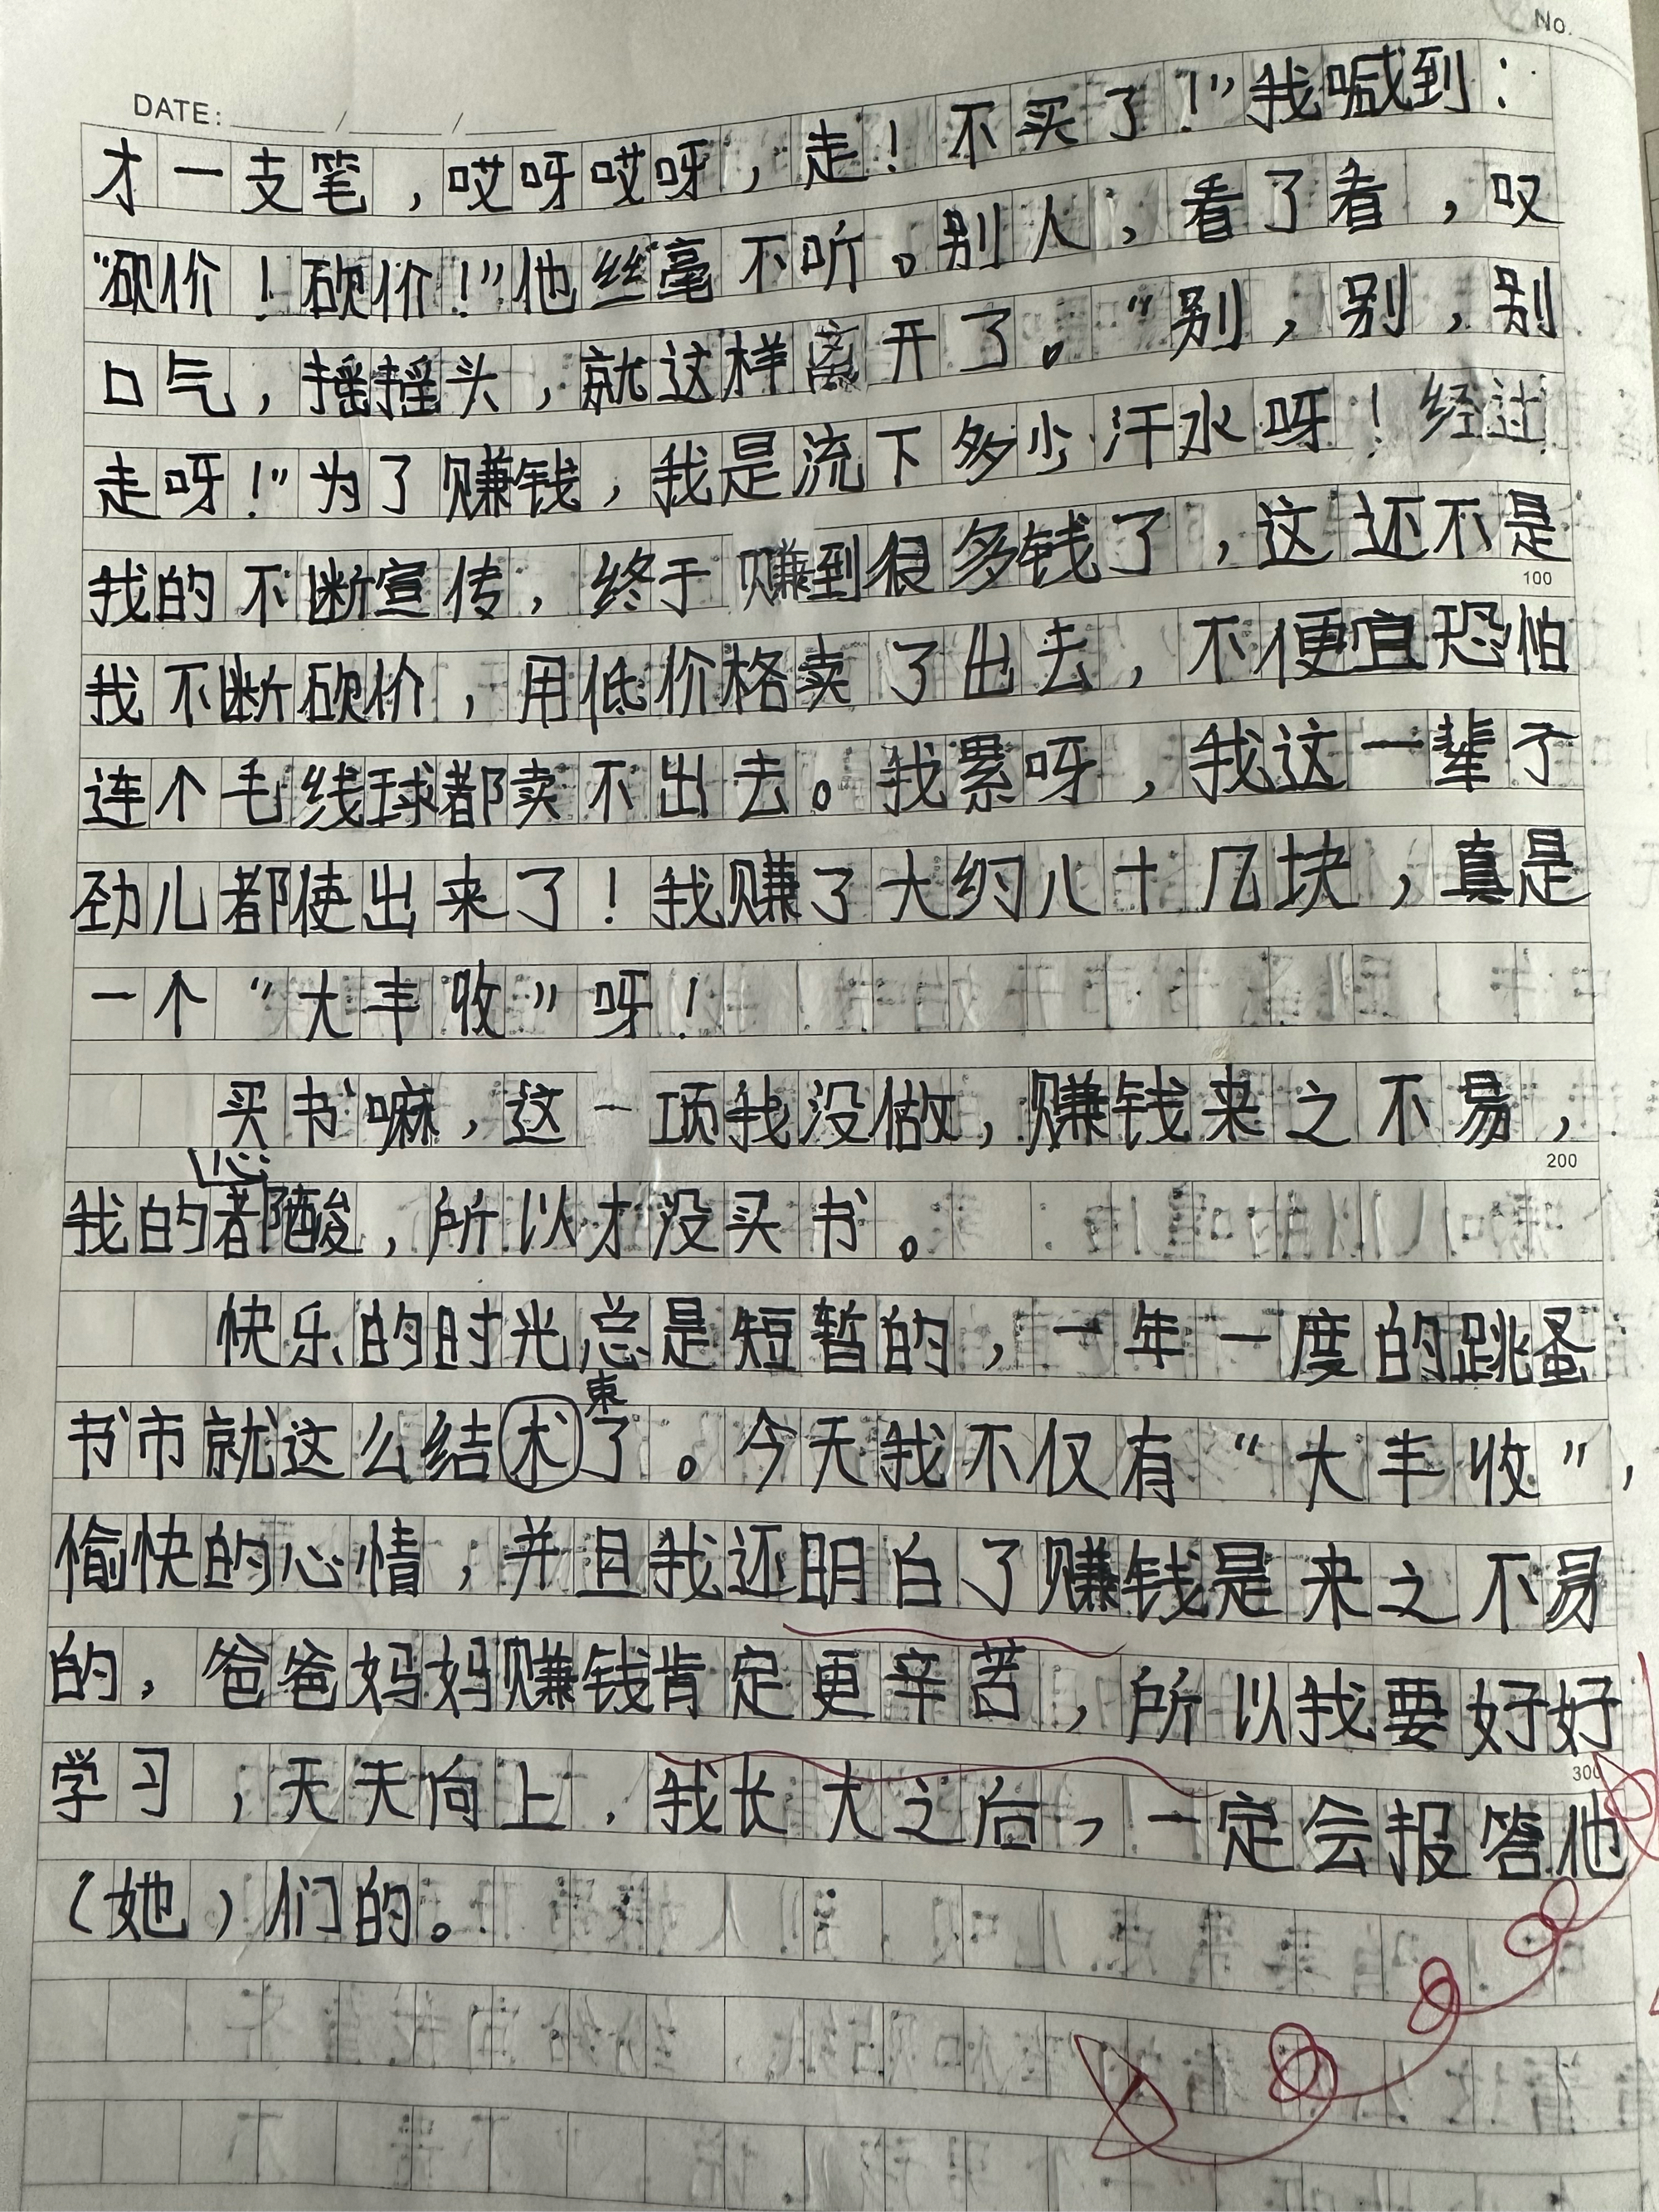 No.
DATE: ____/____/____
才一支笔，哎呀哎呀，走！不买了！”我喊到：
“砍价！砍价！”他丝毫不听。别人，看了看，叹
口气，摇摇头，就这样离开了。“别，别，别
走呀！”为了赚钱，我是流下多少汗水呀！经过
我的不断宣传，终于赚到很多钱了，这还不是
100
我不断砍价，用低价格卖了出去，不便宜恐怕
连个毛线球都卖不出去。我累呀，我这一辈子
劲儿都使出来了！我赚了大约八十几块，真是
一个“大丰收”呀！
买书嘛，这一项我没做，赚钱来之不易，
200
我的心都酸，所以才没买书。
快乐的时光总是短暂的，一年一度的跳蚤
书市就这么结束了。今天我不仅有“大丰收”，
愉快的心情，并且我还明白了赚钱是来之不易
的，爸爸妈妈赚钱肯定更辛苦，所以我要好好
300
学习，天天向上，我长大之后，一定会报答他
（她）们的。